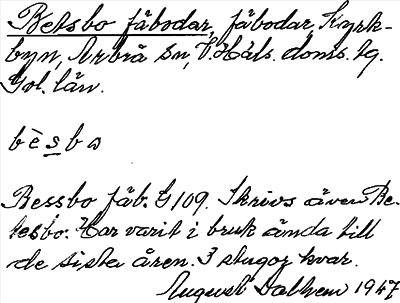 Betsbo fäbodar, fäbodar, Kyrk-
byn, Arbrå sn, V. Häls. doms. lg.
Gvl. län.
bèsbo
Bessbo fäb. G 109. Skrivs även Be-
tesbo. Har varit i bruk ända till
de sista åren. 3 stugor kvar.
August Dalhem 1947